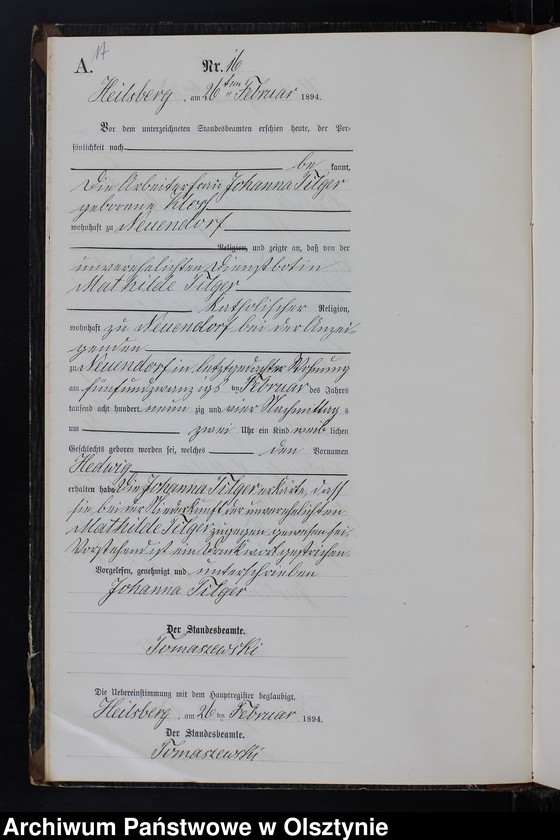 17
A.
Nr. 16
Heilsberg, am 26ten Februar 1894.
Vor dem unterzeichneten Standesbeamten erschien heute, der Per-
sönlichkeit nach
be kannt,
die Arbeiterfrau Johanna Tilger
geborene Klerf
wohnhaft zu Neuendorf
Religion, und zeigte an, daß von der
unverehelichten Dienstbotin
Mathilde Tilger
katholischer Religion,
wohnhaft zu Neuendorf bei der Anzei-
genden
zu Neuendorf in letztgedachter Wohnung
am fünfundzwanzigsten Februar des Jahres
tausend acht hundert neun zig und vier Nachmittags
um zwei Uhr ein Kind weib lichen
Geschlechts geboren worden sei, welches den Vornamen
Hedwig
erhalten habe. Die Johanna Tilger erklärte, daß
sie bei der Niederkunft der unverehelichten
Mathilde Tilger zugegen gewesen sei.
Vorstehend ist ein Druckwort gestrichen.
Vorgelesen, genehmigt und unterschrieben
Johanna Tilger
Der Standesbeamte.
Tomaszewski
Die Uebereinstimmung mit dem Hauptregister beglaubigt.
Heilsberg, am 26 ten Februar 1894.
Der Standesbeamte.
Tomaszewski
Archiwum Państwowe w Olsztynie